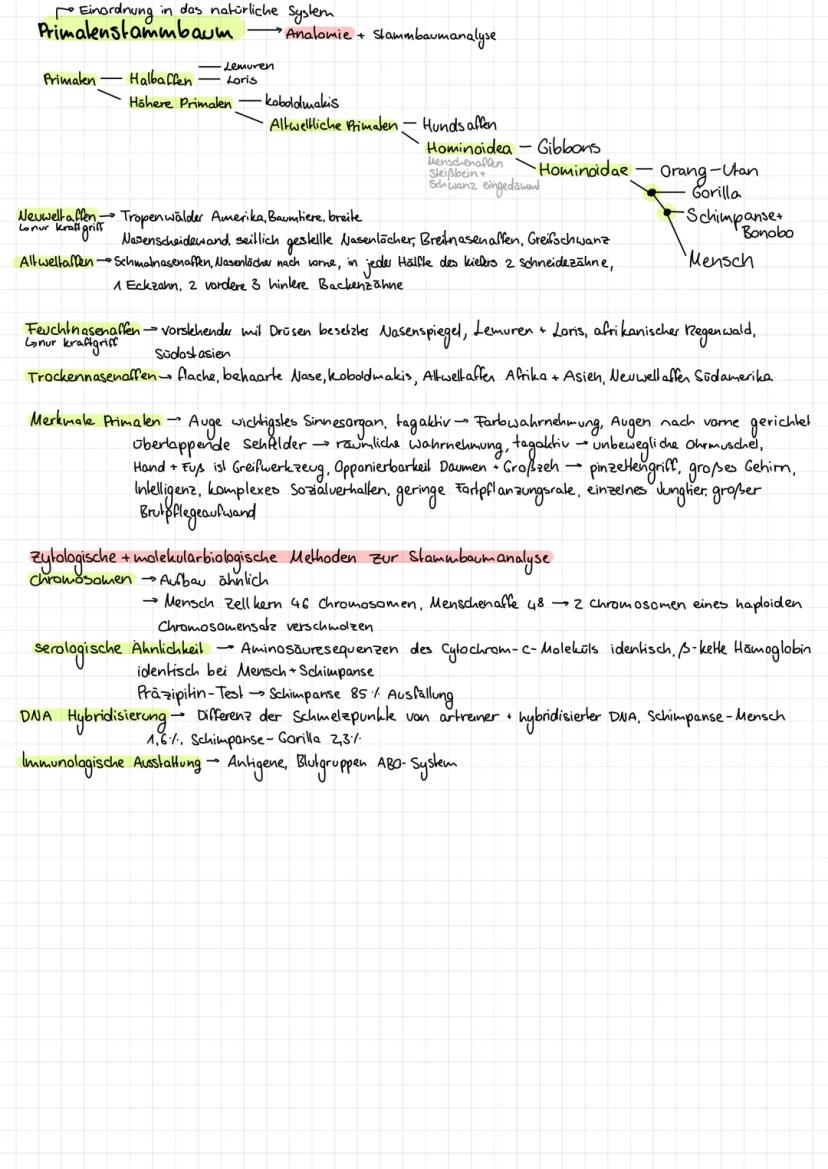 → Einordnung in das natürliche System
Primatenstammbaum → Anatomie + Stammbaumanalyse
Lemuren
Primaten — Halbaffen — Loris
Höhere Primaten — Koboldmakis
Altweltliche Primaten — Hundsaffen
Hominoidea — Gibbons
Menschenaffen
Steißbein +
Schwanz eingedämmt
Hominoidae — Orang-Utan
Gorilla
Schimpanse +
Bonobo
Mensch
Neuweltaffen → Tropenwälder Amerika, Baumtiere, breite
↳ nur Kraftgriff
Nasenscheidewand, seitlich gestellte Nasenlöcher, Breitnasenaffen, Greifschwanz
Altweltaffen → Schmalnasenaffen, Nasenlöcher nach vorne, in jeder Hälfte des Kiefers 2 Schneidezähne,
1 Eckzahn, 2 vordere 3 hintere Backenzähne
Feuchtnasenaffen → vorstehender mit Drüsen besetzter Nasenspiegel, Lemuren + Loris, afrikanischer Regenwald,
↳ nur Kraftgriff
Südostasien
Trockennasenaffen → flache, behaarte Nase, Koboldmakis, Altweltaffen Afrika + Asien, Neuweltaffen Südamerika
Merkmale Primaten → Auge wichtigstes Sinnesorgan, tagaktiv → Farbwahrnehmung, Augen nach vorne gerichtet
überlappende Sehfelder → räumliche Wahrnehmung, tagaktiv → unbewegliche Ohrmuschel,
Hand + Fuß ist Greifwerkzeug, Opponierbarkeit Daumen + Großzeh → pinzettengriff, großes Gehirn,
Intelligenz, komplexes Sozialverhalten, geringe Fortpflanzungsrate, einzelnes Jungtier, großer
Brutpflegeaufwand
Zytologische + molekularbiologische Methoden zur Stammbaumanalyse
Chromosomen → Aufbau ähnlich
→ Mensch Zellkern 46 Chromosomen, Menschenaffe 48 → 2 Chromosomen eines haploiden
Chromosomensatz verschmolzen
Serologische Ähnlichkeit → Aminosäuresequenzen des Cytochrom-c-Moleküls identisch, β-Kette Hämoglobin
identisch bei Mensch + Schimpanse
Präzipitin-Test → Schimpanse 85% Ausfällung
DNA Hybridisierung → Differenz der Schmelzpunkte von artreiner + hybridisierter DNA, Schimpanse-Mensch
1,6%, Schimpanse-Gorilla 2,3%
Immunologische Ausstattung → Antigene, Blutgruppen AB0-System